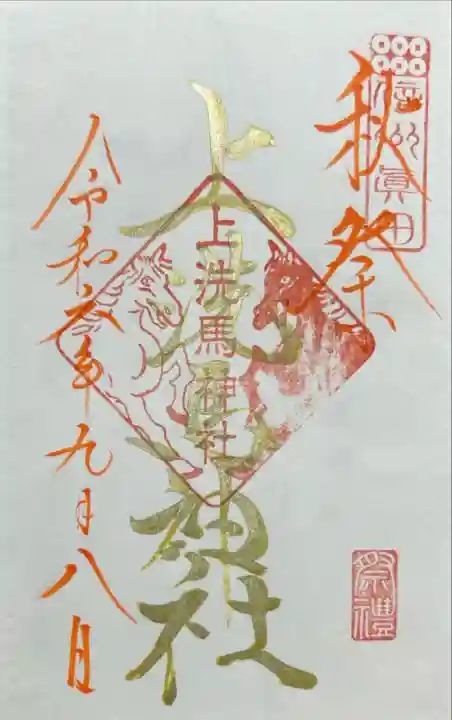 信州眞田
秋祭
上洗馬神社
上洗馬神社
令和六年九月八日
祭禮